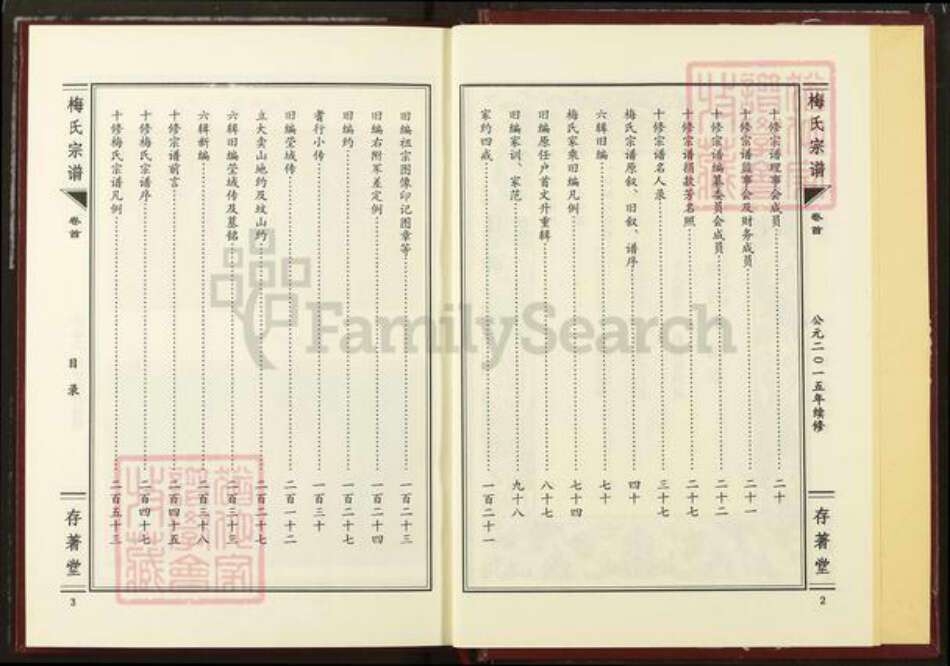 梅氏宗谱
卷首
公元二〇一五年续修
存著堂
2
十修宗谱理事会成员 二十
十修宗谱监事会及财务成员 二十一
十修宗谱编纂委员会成员 二十二
十修宗谱捐款芳名照 二十七
十修宗谱名人录 三十七
梅氏宗谱原叙、旧叙、谱序 四十
六辑旧编 七十
梅氏家乘旧编凡例 七十四
旧编原任户首文升重辑 八十七
旧编家训、家范 九十八
家约四戒 一百二十一
旧编祖宗图像印记图章等 一百二十三
旧编右附军差定例 一百二十四
旧编约 一百二十七
耆行小传 一百三十
旧编茔域传 二百一十二
立大卖山地约及坟山约 二百二十七
六辑旧编茔域传及墓铭 二百三十三
六辑新编 二百三十八
十修宗谱前言 二百四十五
十修梅氏宗谱序 二百四十七
十修梅氏宗谱凡例 二百五十三
梅氏宗谱
卷首
目录
存著堂
3
FamilySearch